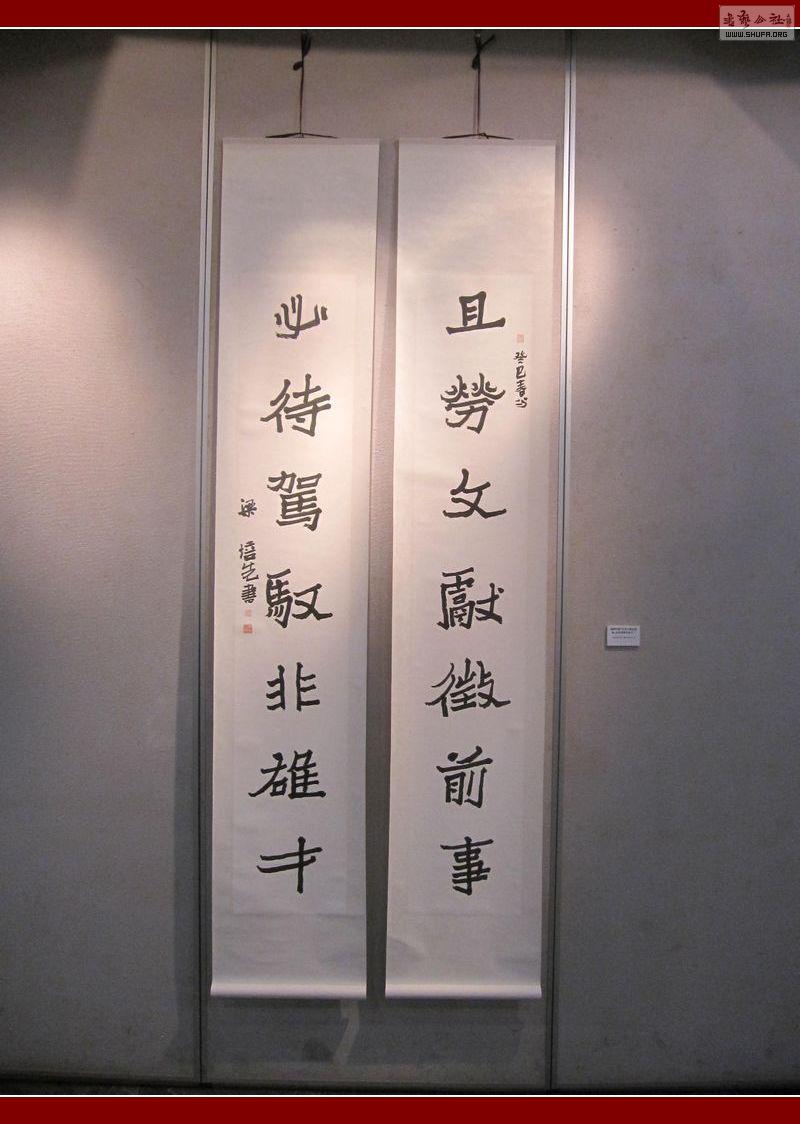 且勞文獻徵前事
癸巳春
必待駕馭非雄才
梁培先書
WWW.SHUFA.ORG